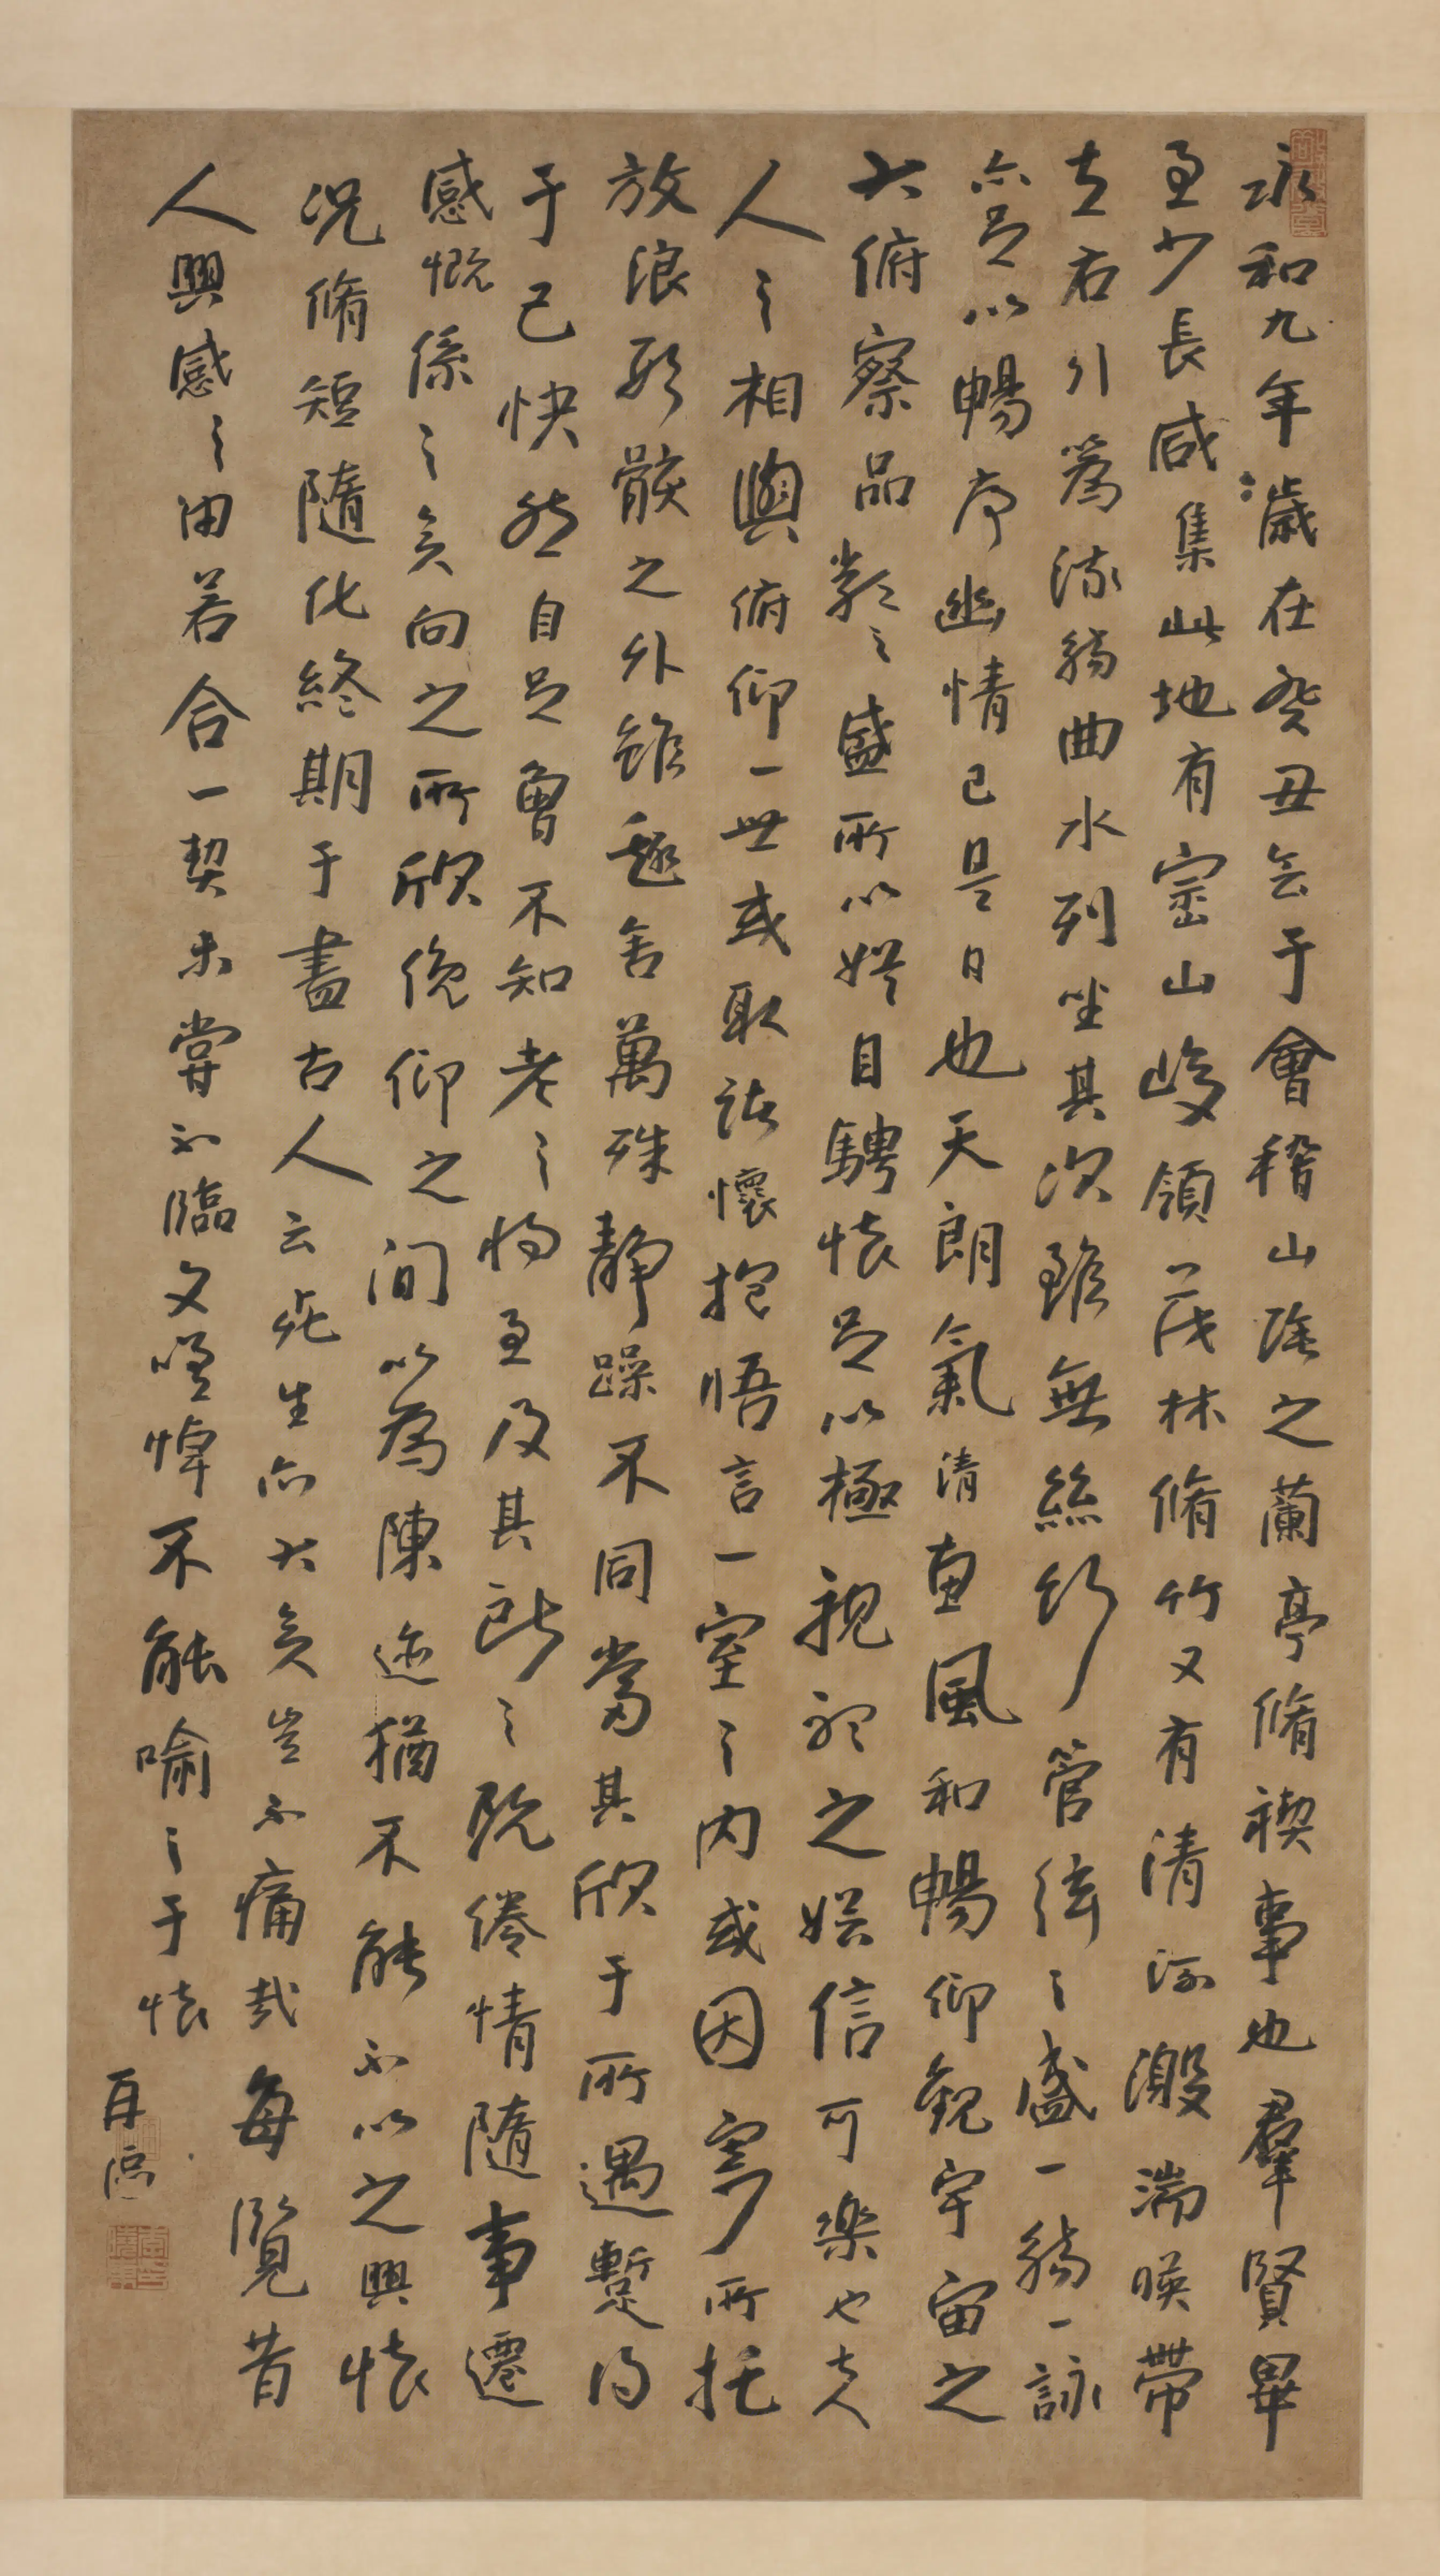 永和九年歲在癸丑会于會稽山陰之蘭亭脩禊事也羣賢畢
至少長咸集此地有崇山峻領茂林脩竹又有清流激湍暎帶
左右引為流觴曲水列坐其次雖無絲竹管絃之盛一觴一詠
亦足以暢序幽情已是日也天朗氣清惠風和暢仰觀宇宙之
大俯察品類之盛所以遊目騁懷足以極視聽之娛信可樂也夫
人之相與俯仰一世或取諸懷抱悟言一室之內或因寄所托
放浪形骸之外雖趣舍萬殊靜躁不同當其欣于所遇暫得
于己快然自足曾不知老之將至及其所之既倦情隨事遷
感慨係之矣向之所欣俛仰之間以為陳迹猶不能不以之興懷
況脩短隨化終期于盡古人云死生亦大矣豈不痛哉每覽昔
人興感之由若合一契未嘗不臨文嗟悼不能喻之于懷
再臨